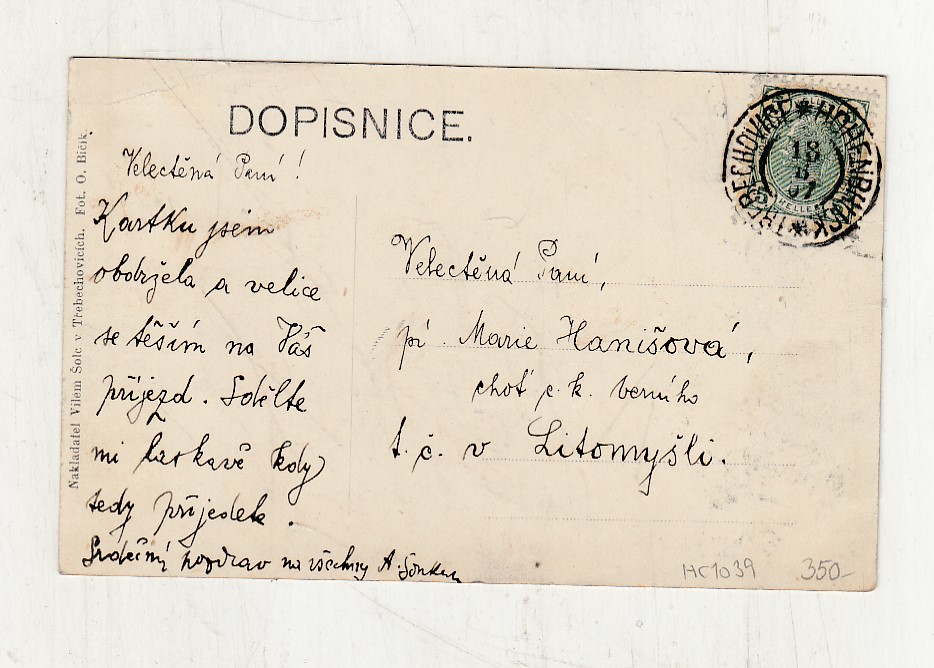 DOPISNICE.
TŘEBECHOVICE * HOHENBRUCK *
18
07
HELLER
Nakladatel Vilém Šolc v Třebechovicích. Fot. O. Bičík.
Velectěná Paní!
Kartku jsem
obdržela a velice
se těším na Váš
příjezd. Sdělte
mi laskavě kdy
tedy přijedete.
Srdečný pozdrav na všechny A.
Velectěná Paní,
pí Marie Hanišová,
choť c. k. berního
t. č. v Litomyšli.
HC1039 350-